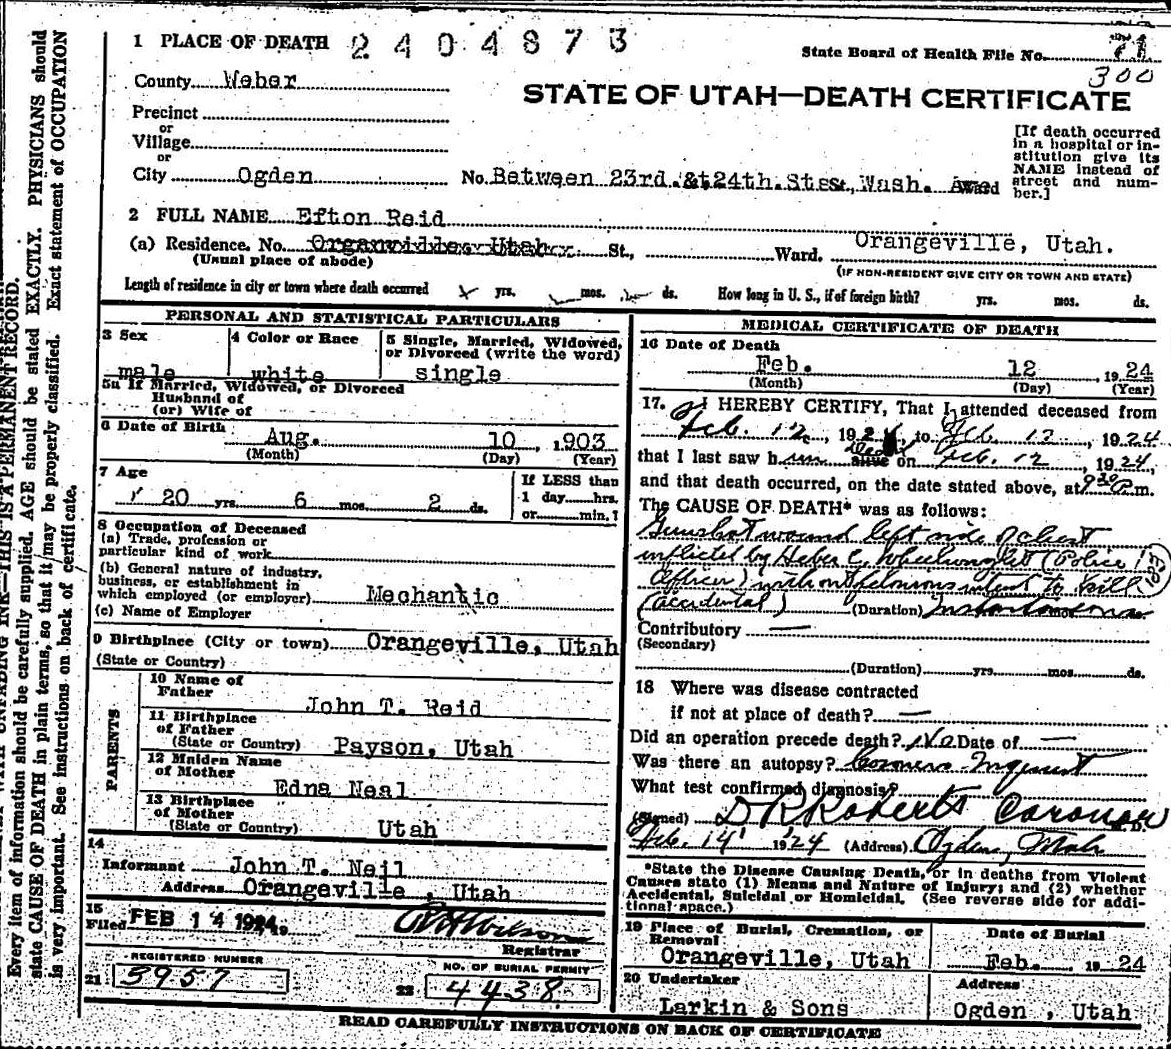 1 PLACE OF DEATH 2404873
State Board of Health File No. 71
300
County Weber
STATE OF UTAH—DEATH CERTIFICATE
Precinct
or
Village
or
City Ogden No. Between 23rd. & 24th. Sts., Wash. Ave
[If death occurred
in a hospital or in-
stitution give its
NAME instead of
street and num-
ber.]
2 FULL NAME Efton Reid
(a) Residence. No. Organville, Utah St., Ward. Orangeville, Utah.
(Usual place of abode) (IF NON-RESIDENT GIVE CITY OR TOWN AND STATE)
Length of residence in city or town where death occurred yrs. mos. ds. How long in U. S., if of foreign birth? yrs. mos. ds.
PERSONAL AND STATISTICAL PARTICULARS
3 Sex
male
4 Color or Race
white
5 Single, Married, Widowed,
or Divorced (write the word)
single
5a If Married, Widowed, or Divorced
Husband of
(or) Wife of
6 Date of Birth Aug. 10 , 1903
(Month) (Day) (Year)
7 Age
20 yrs. 6 mos. 2 ds.
If LESS than
1 day hrs.
or min.?
8 Occupation of Deceased
(a) Trade, profession or
particular kind of work
(b) General nature of industry,
business, or establishment in
which employed (or employer) Mechantic
(c) Name of Employer
9 Birthplace (City or town) Orangeville, Utah
(State or Country)
PARENTS
10 Name of
Father John T. Reid
11 Birthplace
of Father
(State or Country) Payson, Utah
12 Maiden Name
of Mother Edna Neal
13 Birthplace
of Mother
(State or Country) Utah
14
Informant John T. Neil
Address Orangeville , Utah
15
Filed FEB 14 1924
Registrar
REGISTERED NUMBER
21 3957
NO. OF BURIAL PERMIT
22 4438
MEDICAL CERTIFICATE OF DEATH
16 Date of Death
Feb. 12 , 1924
(Month) (Day) (Year)
17. I HEREBY CERTIFY, That I attended deceased from
Feb. 12, 1924, to Feb. 12, 1924
that I last saw him alive Dead on Feb. 12, 1924,
and that death occurred, on the date stated above, at 9 30 P.m.
The CAUSE OF DEATH* was as follows:
Gunshot wound left side of chest
inflicted by Heber C. Wheelwright (Police
Officer) without felonious intent to kill
(accidental) (Duration) Instantaneous
Contributory —
(Secondary)
(Duration) yrs. mos. ds.
18 Where was disease contracted
if not at place of death? —
Did an operation precede death? No Date of —
Was there an autopsy? Coroners Inquest
What test confirmed diagnosis?
(Signed) D R Roberts Coroner M. D.
Feb. 14 1924 (Address) Ogden, Utah
*State the Disease Causing Death, or in deaths from Violent
Causes state (1) Means and Nature of Injury; and (2) whether
Accidental, Suicidal or Homicidal. (See reverse side for addi-
tional space.)
19 Place of Burial, Cremation, or
Removal
Orangeville, Utah
Date of Burial
Feb. 1924
20 Undertaker
Larkin & Sons
Address
Ogden , Utah
READ CAREFULLY INSTRUCTIONS ON BACK OF CERTIFICATE
Every item of information should be carefully supplied. AGE should be stated EXACTLY. PHYSICIANS should
state CAUSE OF DEATH in plain terms, so that it may be properly classified. Exact statement of OCCUPATION
is very important. See instructions on back of certificate.